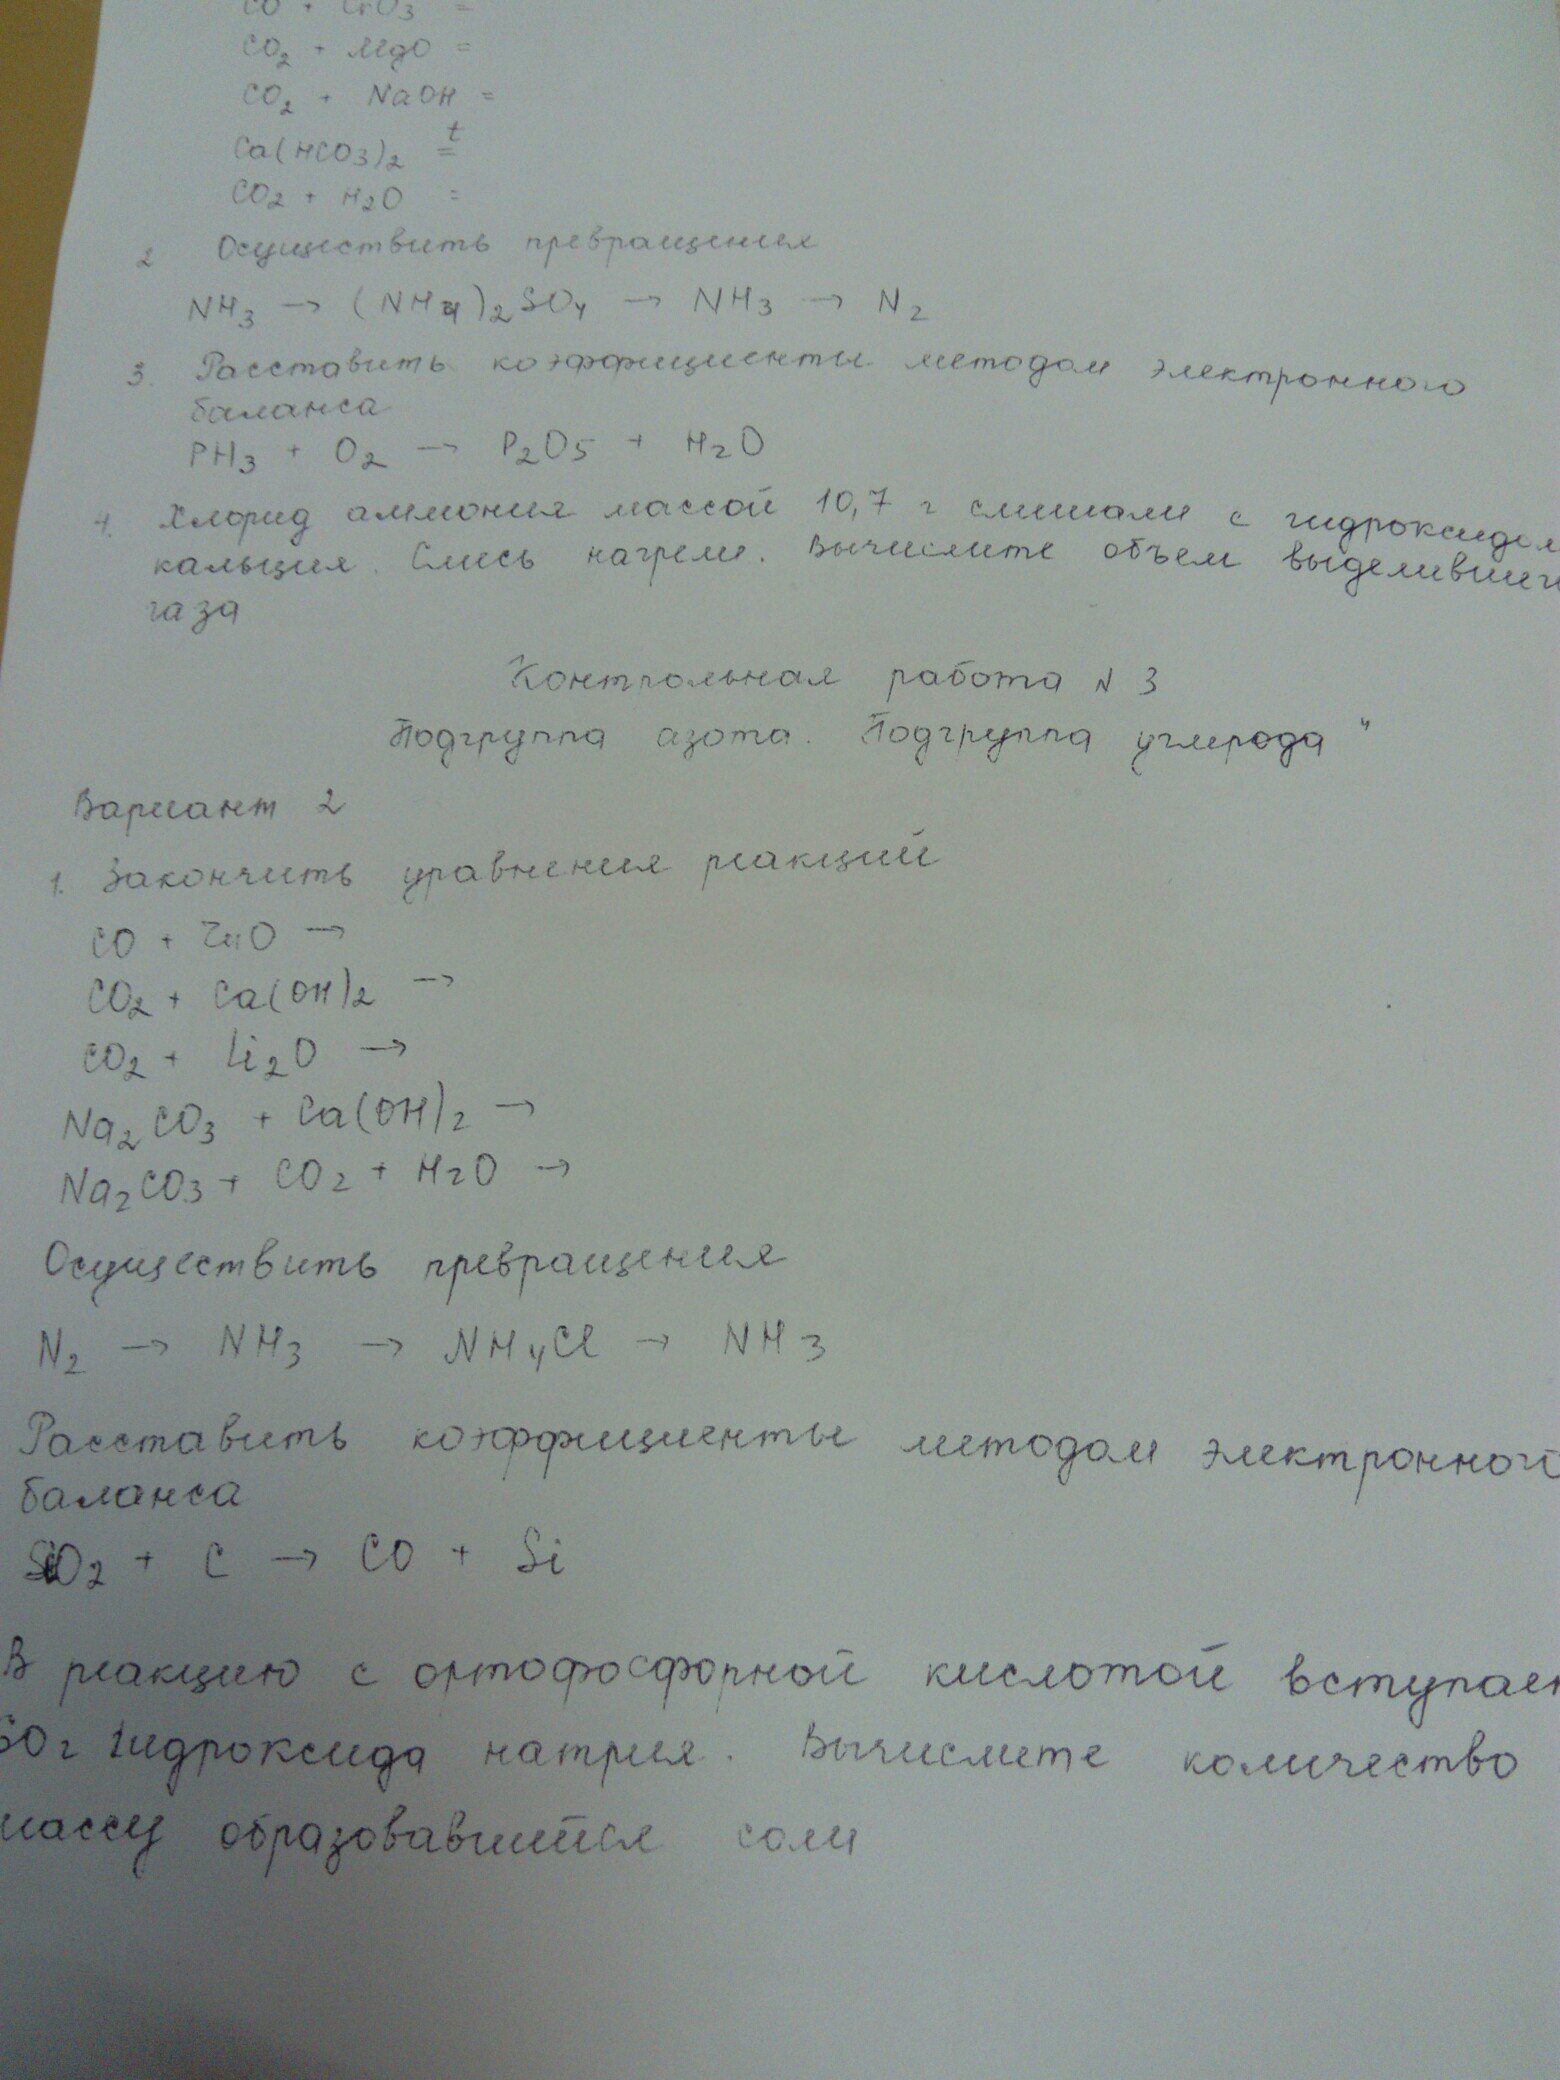 CO + CrO3 =
CO2 + MgO =
CO2 + NaOH =
Ca(HCO3)2 t=
CO2 + H2O =
2 Осуществить превращения
NH3 → (NH4)2SO4 → NH3 → N2
3. Расставить коэффициенты методом электронного
баланса
PH3 + O2 → P2O5 + H2O
4. Хлорид аммония массой 10,7 г смешали с гидроксидом
кальция. Смесь нагрели. Вычислите объем выделившег
газа
Контрольная работа N 3
Подгруппа азота. Подгруппа углерода"
Вариант 2
1. Закончить уравнения реакций
CO + ZnO →
CO2 + Ca(OH)2 →
CO2 + Li2O →
Na2CO3 + Ca(OH)2 →
Na2CO3 + CO2 + H2O →
Осуществить превращения
N2 → NH3 → NH4Cl → NH3
Расставить коэффициенты методом электронного
баланса
SiO2 + C → CO + Si
В реакцию с ортофосфорной кислотой вступает
60г гидроксида натрия. Вычислите количество
массу образовавшейся соли